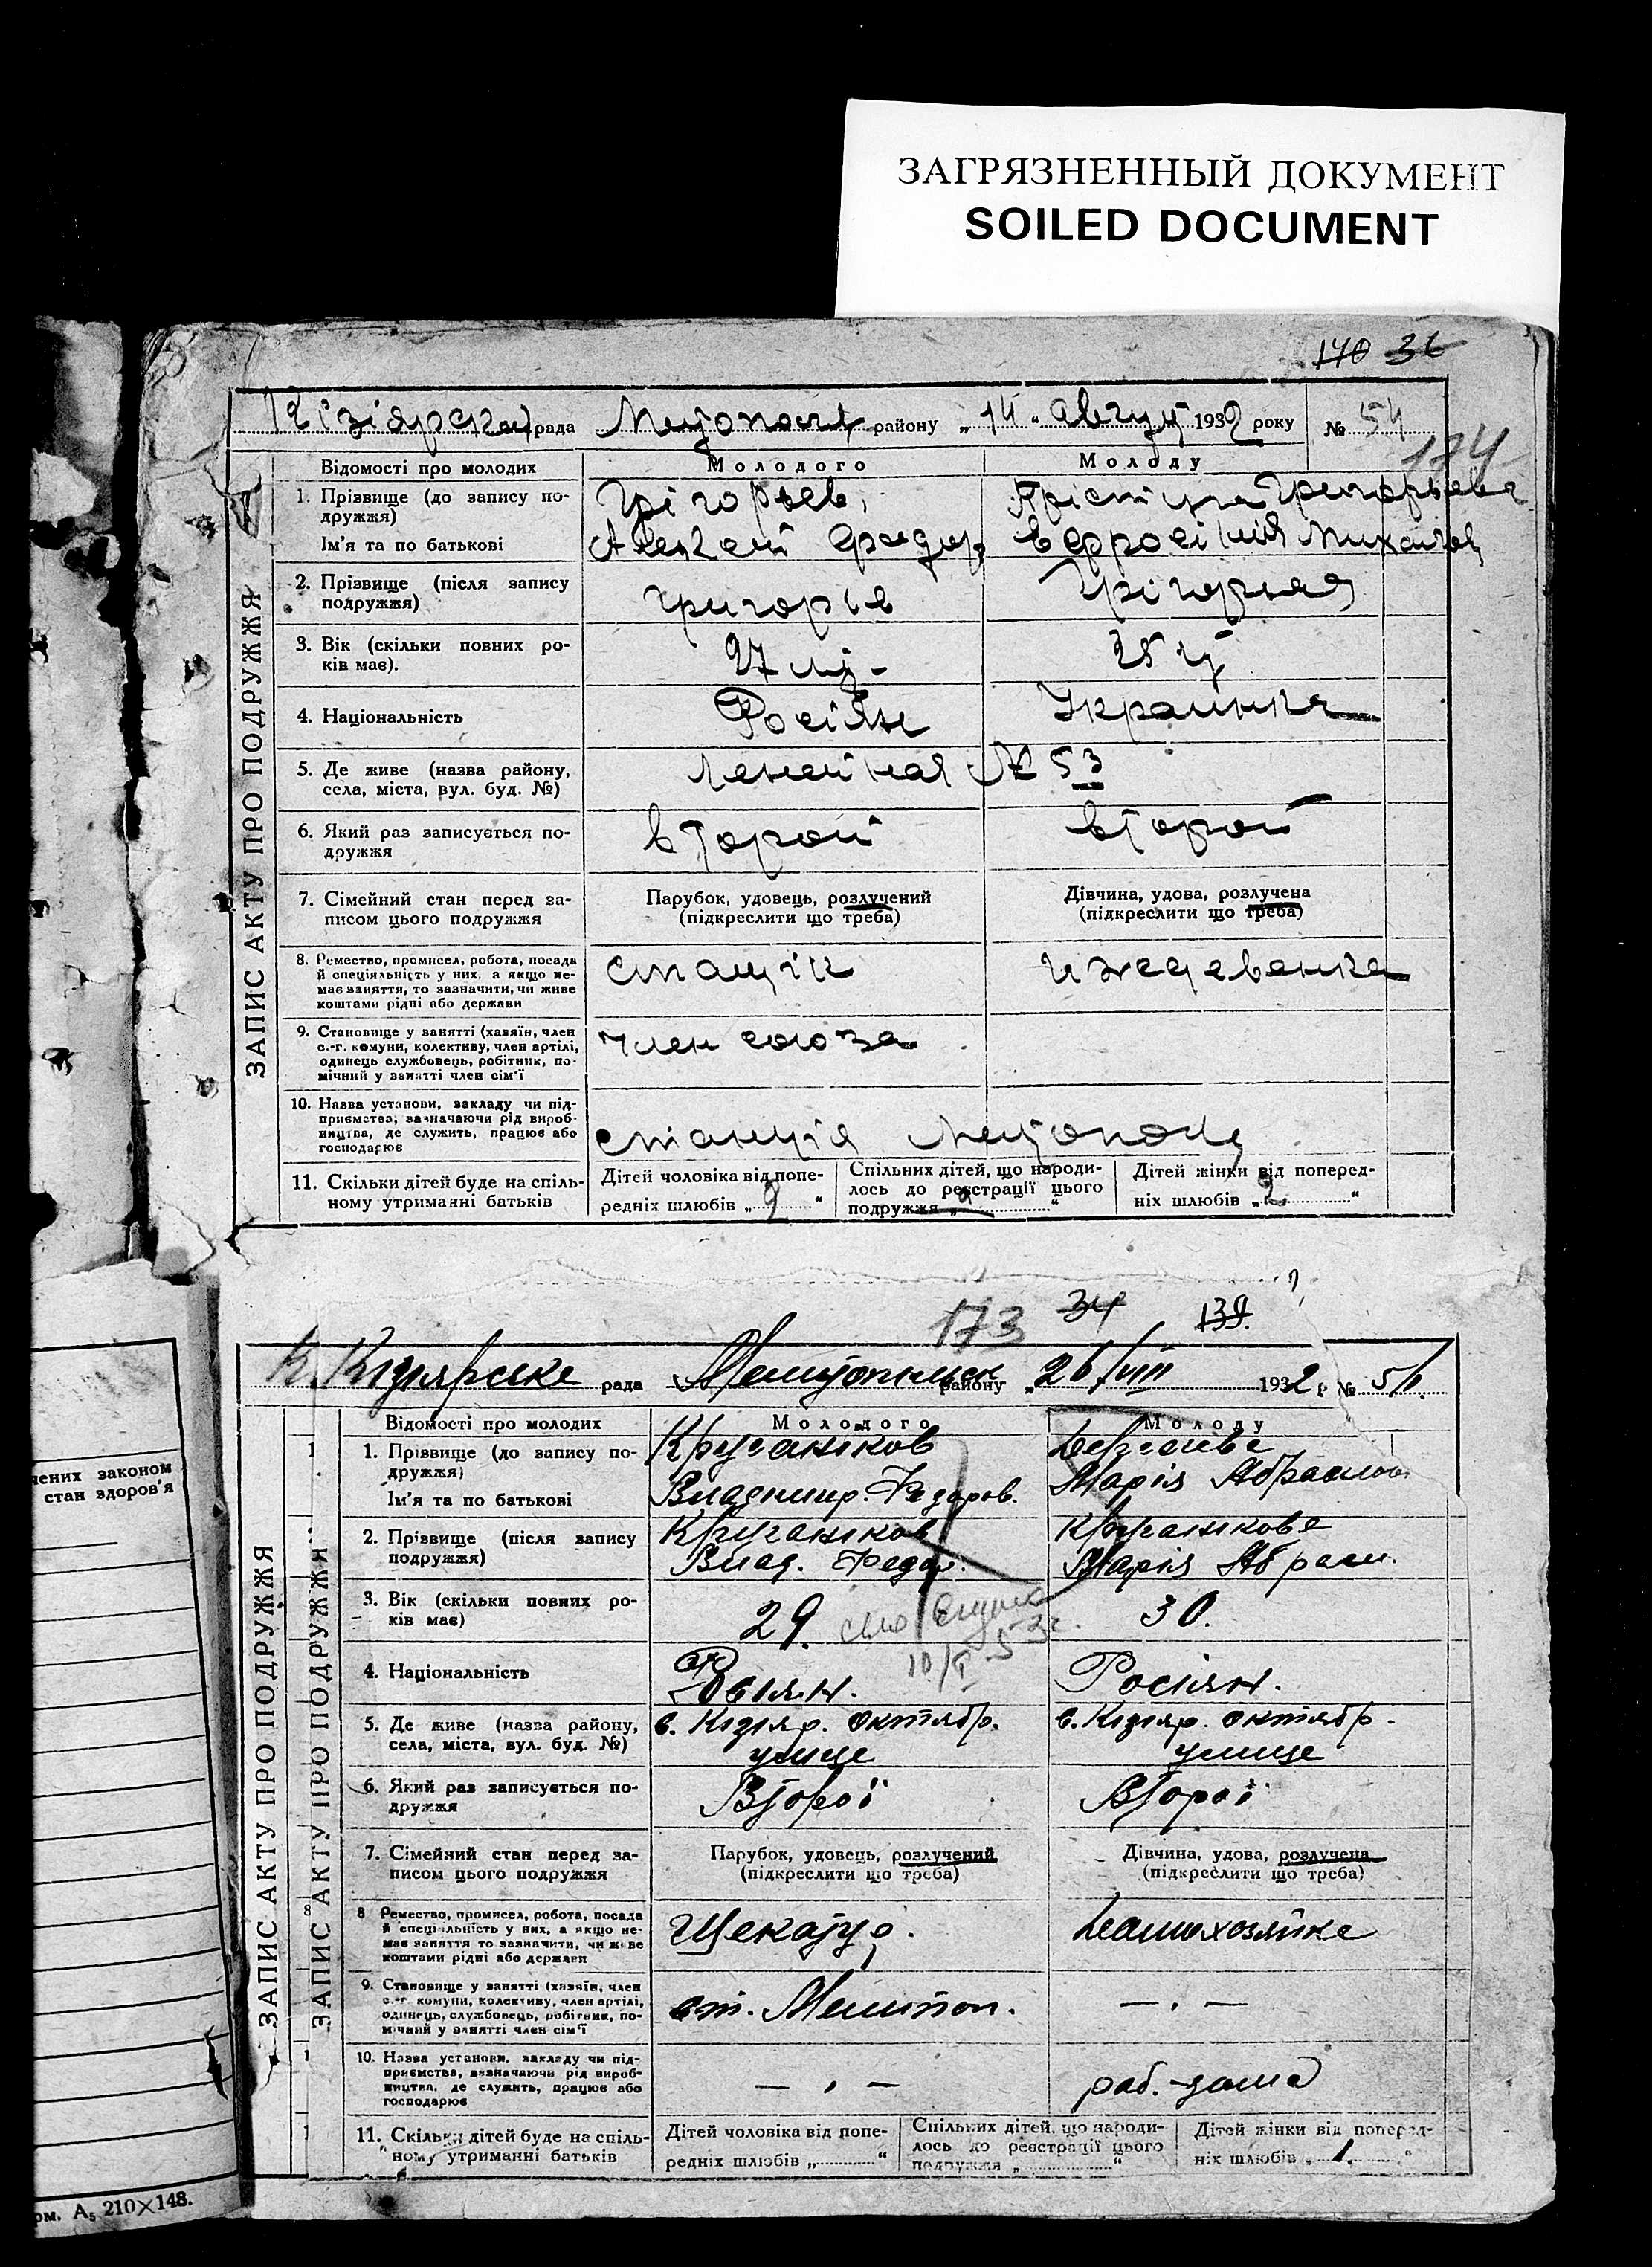 ЗАГРЯЗНЕННЫЙ ДОКУМЕНТ
SOILED DOCUMENT
170 36
рада району „ 14 " август 1932 року № 54
174
ЗАПИС АКТУ ПРО ПОДРУЖЖЯ
Відомості про молодих Молодого Молоду
1. Прізвище (до запису по-
дружжя)
Ім'я та по батькові
Грігорьев,
2. Прізвище (після запису
подружжя)
3. Вік (скільки повних ро-
ків має).
27 25
4. Національність
Украинка
5. Де живе (назва району,
села, міста, вул. буд. №)
№ 53
6. Який раз записується по-
дружжя
второй второй
7. Сімейний стан перед за-
писом цього подружжя
Парубок, удовець, розлучений
(підкреслити що треба)
Дівчина, удова, розлучена
(підкреслити що треба)
8. Ремество, промисел, робота, посада
й спеціяльність у них, а якщо не-
має заняття, то зазначити, чи живе
коштами рідні або держави
иждевенка
9. Становище у занятті (хазяїн, член
с.-г. комуни, колективу, член артілі,
одинець службовець, робітник, по-
мічний у занятті член сім'ї
член союза
10. Назва установи, закладу чи під-
приємства, зазначаючи рід вироб-
ництва, де служить, працює або
господарює
станція
11. Скільки дітей буде на спіль-
ному утриманні батьків
Дітей чоловіка від попе-
редніх шлюбів „ 2 "
Спільних дітей, що народи-
лось до реєстрації цього
подружжя „ "
Дітей жінки від поперед-
ніх шлюбів „ 2 "
173 34 139.
Кізіярське рада району „ 26/VIII 1932 р. №
ЗАПИС АКТУ ПРО ПОДРУЖЖЯ
ЗАПИС АКТУ ПРО ПОДРУЖЖЯ
Відомості про молодих Молодого Молоду
1. Прізвище (до запису по-
дружжя)
Ім'я та по батькові
Владимир. Федоров.
Марія
2. Прізвище (після запису
подружжя)
Влад. Федор.
Марія Абрам.
3. Вік (скільки повних ро-
ків має)
29. 30.
4. Національність
Росіян.
5. Де живе (назва району,
села, міста, вул. буд. №)
с. Кізіяр. октябр. с. Кізіяр. октябр.
улице улице
6. Який раз записується по-
дружжя
Второї Второї
7. Сімейний стан перед за-
писом цього подружжя
Парубок, удовець, розлучений
(підкреслити що треба)
Дівчина, удова, розлучена
(підкреслити що треба)
8 Ремество, промисел, робота, посада
й спеціяльність у них, а якщо не-
має заняття то зазначити, чи живе
коштами рідні або держави
Щекатур. Домохозяйке
9. Становище у занятті (хазяїн, член
с.-г. комуни, колективу, член артілі,
одинець, службовець, робітник, по-
мічний у занятті член сім'ї
ст. Мелитоп.
10. Назва установи, закладу чи під-
приємства, зазначаючи рід вироб-
ництва, де служить, працює або
господарює
раб. дома
11. Скільки дітей буде на спіль-
ному утриманні батьків
Дітей чоловіка від попе-
редніх шлюбів „ "
Спільних дітей, що народи-
лось до реєстрації цього
подружжя „ "
Дітей жінки від поперед-
ніх шлюбів „ 1. "
чених законом
стан здоров'я
ом. А5 210×148.